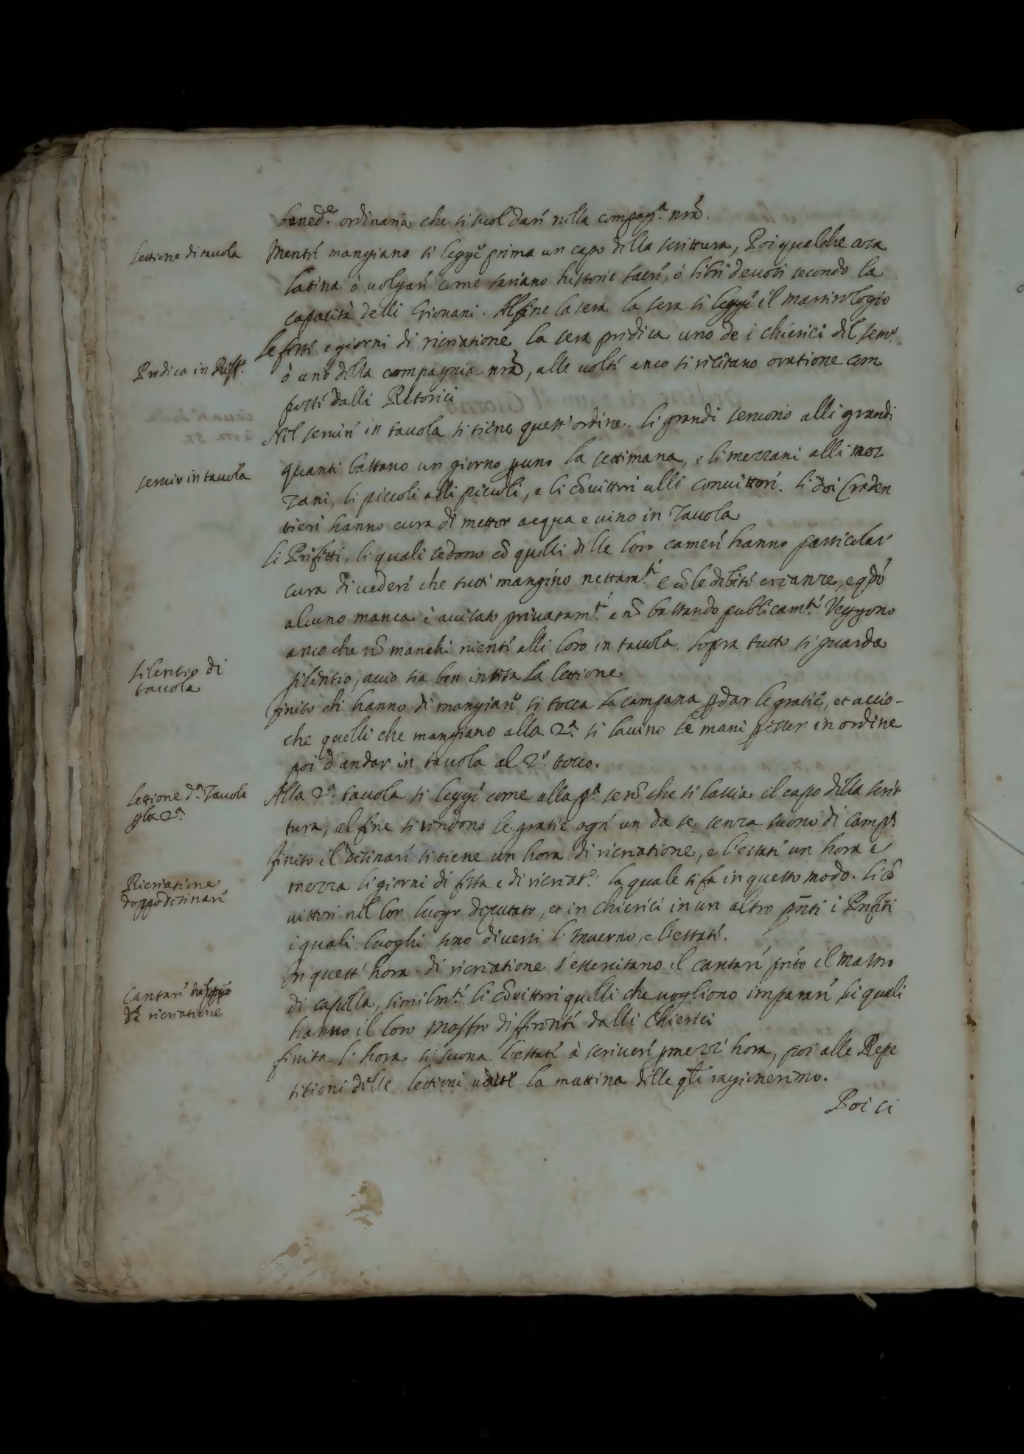 bened.e ordinaria che si suol dare nella compag.a nrã.
Lettione di tauola
Mentre mangiano si legge prima un capo della scrittura, Poi qualche cosa
latina o uolgare come sariano historie sacre, ò libri deuoti secondo la
capacità delli Giouani. Al fine la sera la sera si legge il martirologio
Le feste e giorni di ricreatione la sera predica uno de i chierici del sem.o
Predica in Reff.o
ò uno della compagnia nrã, alle uolte anco si recitano oratione com
poste dalli Retorici
Nel seruire in tauola si tiene quest'ordine. li grandi seruono alli grandi
seruir in tauola
quanti bastano un giorno per uno la settimana, e li mezzani alli mez
zani, li piccoli alli piccoli, e li cõuittori alli conuittori. li doi Creden
tieri hanno cura di metter acqua e uino in Tauola
li Prefetti, li quali sedono cõ quelli delle loro camere hanno particular
cura di uedere che tutti mangino nettam.te e cõ le debite creanze, e qdõ
alcuno manca è auisato priuatam.te e nõ bastando publicam.te Veggono
anco che nõ manchi niente alli loro in tauola. sopra tutto si guarda
silentio di
tauola
silentio, acciò sia ben intesa la lettione
finito che hanno di mangiare si tocca la campana p dar le gratie, et accio-
che quelli che mangiano alla 2.a si lauino le mani p esser in ordine
poi d'andar in tauola al 2.o tocco.
Lettione d.a Tauola
p la 2.a
Alla 2.a tauola si legge come alla p.a se nõ che si lascia il capo della scrit
tura, al fine si rendono le gratie ogni un da se, senza suono di camp.a
finito il desinare si tiene un hora di ricreatione, e l'estate un hora e
Ricreatione
doppo desinare
mezza li giorni di festa e di ricreat.e la quale si fa in questo modo. li cõ
uittori nel lor luogo deputato, et in chierici in un altro pñti i Prefetti
i quali luoghi sono diuersi l'Inuerno, e l'estate.
In quest'hora di ricreatione s'essercitano il cantare pñte il mastro
Cantare
d.a ricreatione
di capella, similm.te li cõuittori quelli che uogliono imparare li quali
hanno il loro Mastro differente dalli Chierici
finita l'hora si suona l'estate à scriuere p mezz'hora, poi alle Repe
titioni delle lettioni udite la mattina delle qli ragioneremo.
Poi si